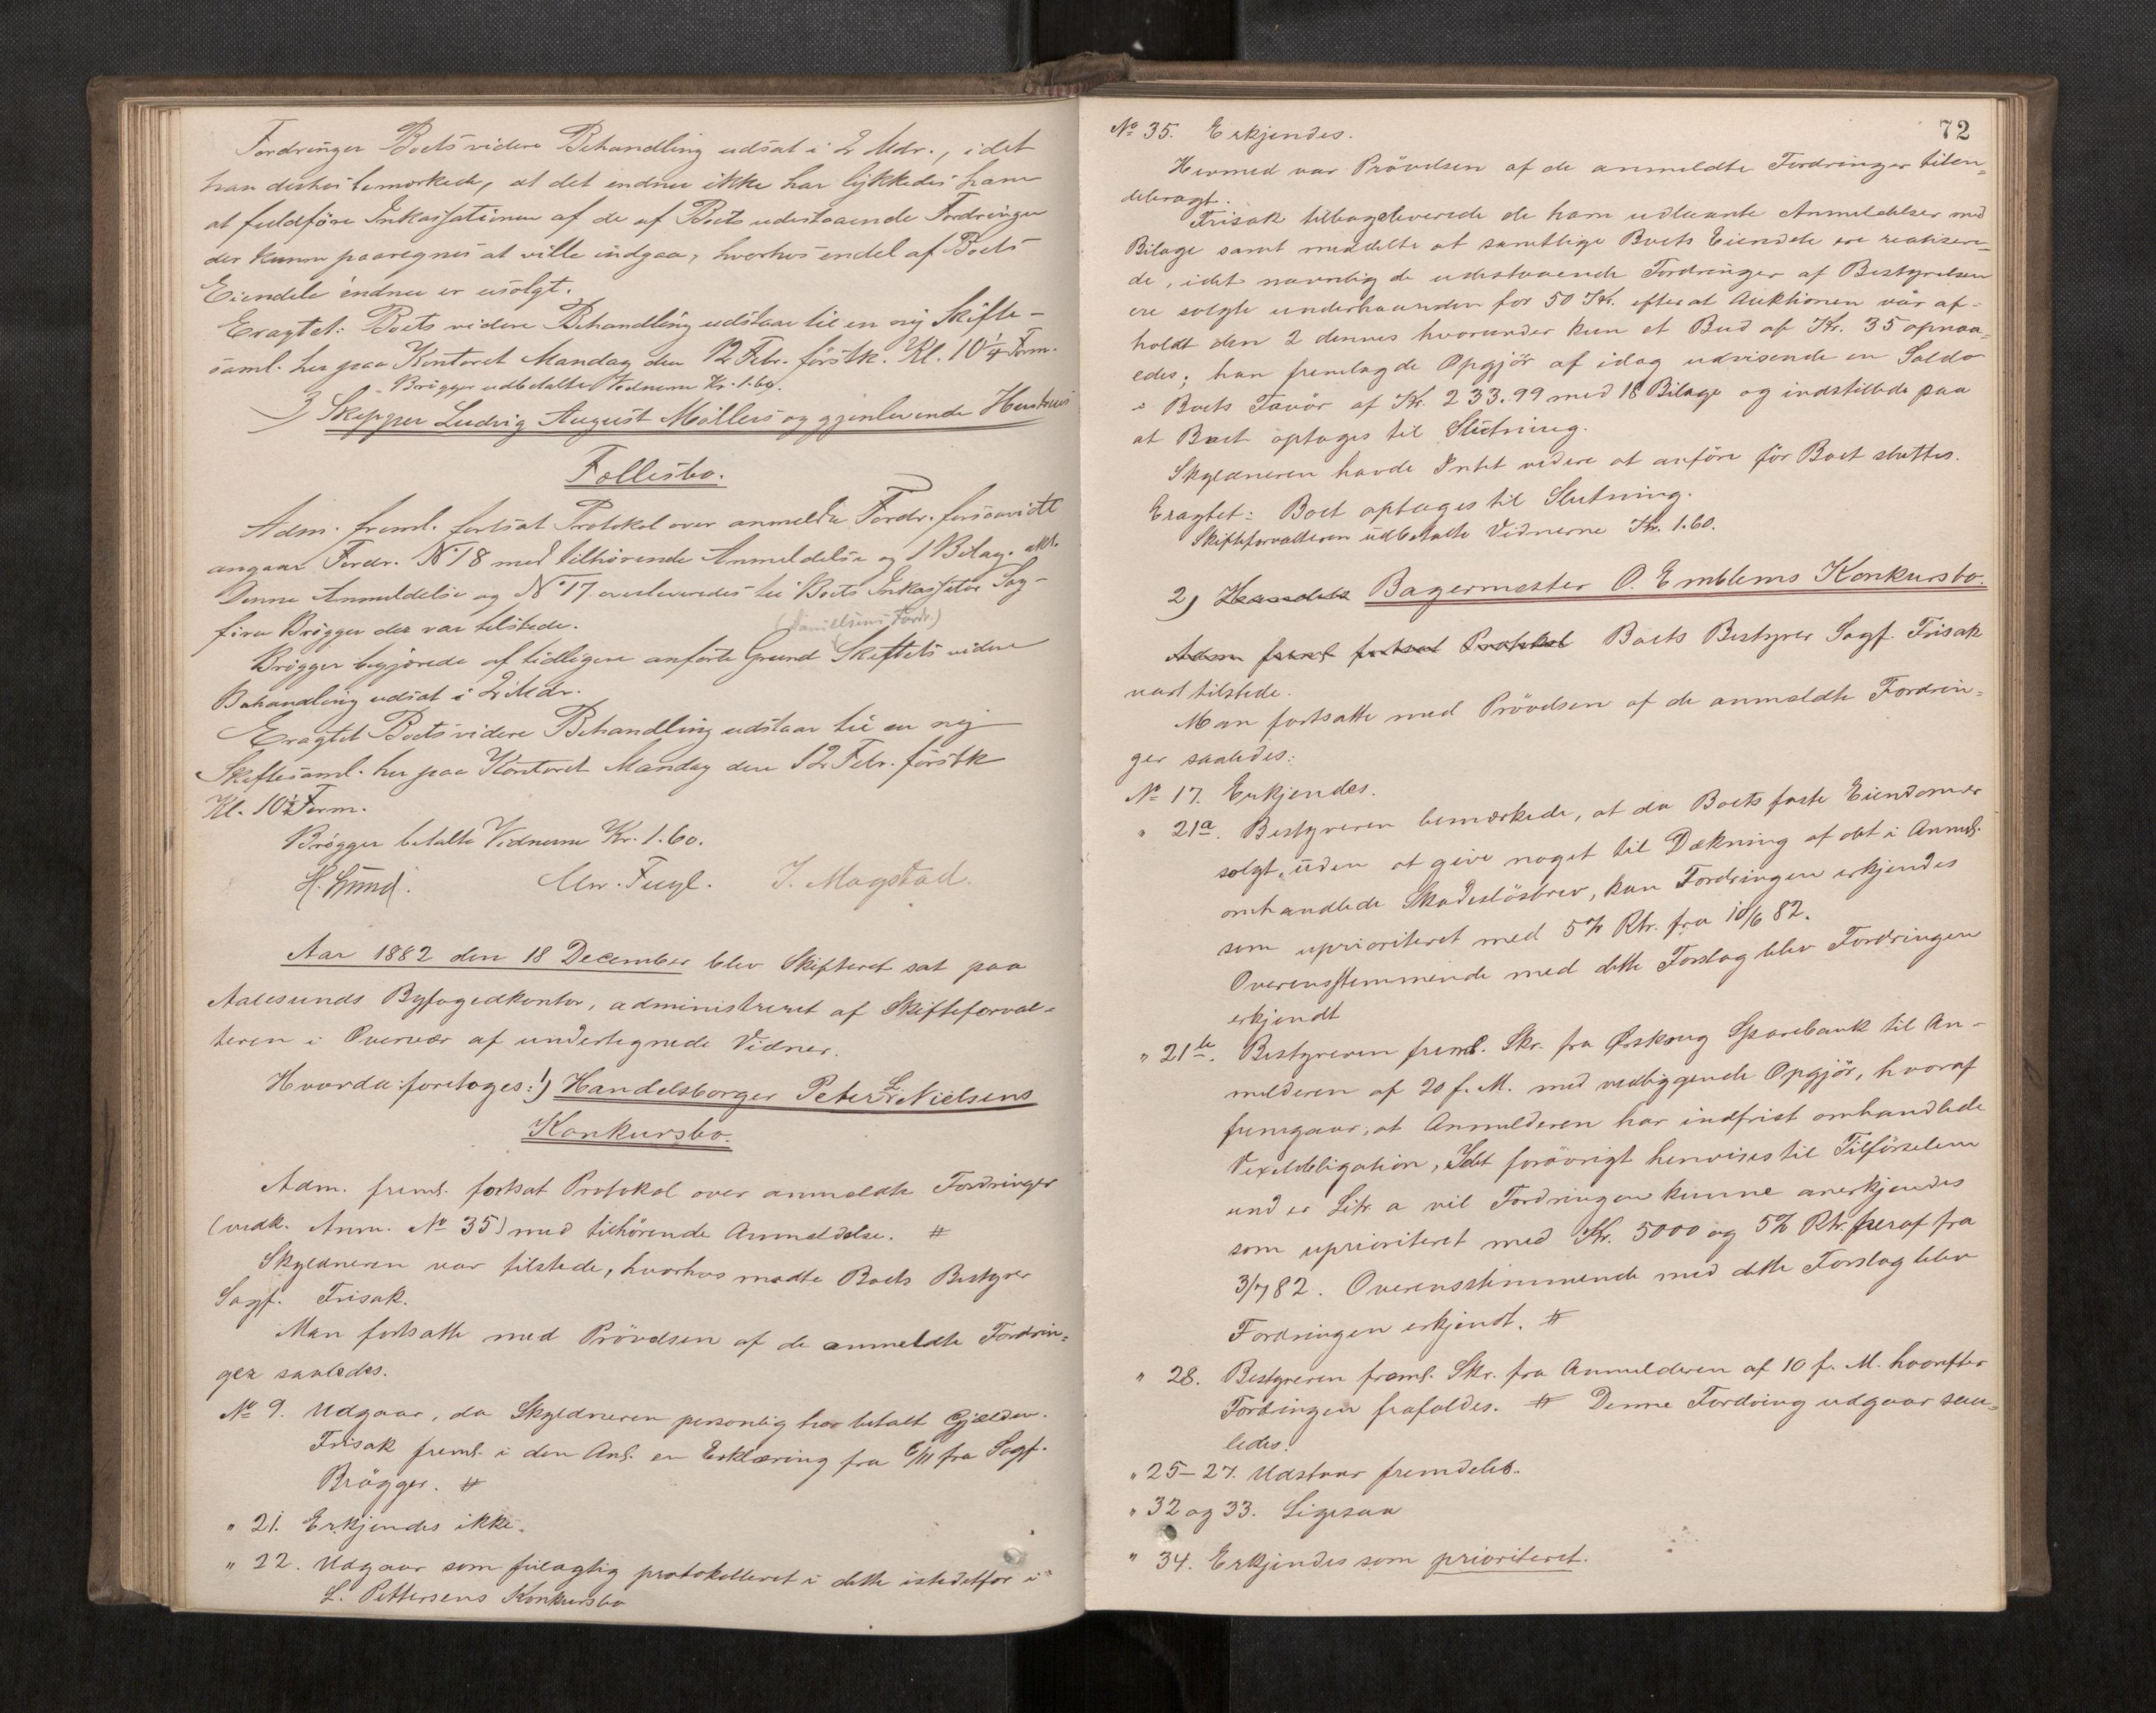 Fordringer Boets videre Behandling udsat i 2 Mdr., idet
han derhos bemærkede, at det endnu ikke har lykkedes ham
at fuldföre Inkassationen af de af Boets udestaaende Fordringer
der kunne paaregnes at ville indgaa, hvorhos endel af Boets
Eiendele endnu er usolgt.
Eragtet: Boets videre Behandling udstaar til en ny Skifte-
saml. her paa Kontoret Mandag den 12 Febr. förstk. Kl. 10 1/4 Form.
Brögger udbetalte Vidnerne Kr. 1.60.
3) Skipper Ludvig August Möllers og gjenlevende Hustrues
Fællesbo.
Adm. freml. fortsat Protokol over anmeldte Fordr. forsaavidt
angaar Fordr. No 18 med tilhörende Anmeldelse og 1 Bilag. akt.
Denne Anmeldelse og No 17 overleveredes til Boets Inkassator Sag-
förer Brögger der var tilstede.
(Danielsens Fordr.)
Brögger begjærede af tidligere anförte Grund Skiftets videre
Behandling udsat i 2 Mdr.
Eragtet Boets videre Behandling udstaar til en ny
Skiftesaml. her paa Kontoret Mandag den 12 Febr. förstk
Kl. 10 1/2 Form.
Brögger betalte Vidnerne Kr. 1.60.
Chr. Fugl. I. Magstad.
Aar 1882 den 18 December blev Skifteret sat paa
Aalesunds Byfogedkontor, administreret af Skifteforval=
teren i Overvær af undertegnede Vidner.
Hvorda foretoges: 1) Handelsborger Peter L. Nielsens
Konkursbo.
Adm. freml. fortsat Protokol over anmeldte Fordringer
(vedk. Anm. No 35) med tilhörende Anmeldelse. #
Skyldneren var tilstede, hvorhos mødte Boets Bestyrer
Sagf. Frisak.
Man fortsatte med Prövelsen af de anmeldte Fordrin=
ger saaledes.
No 9. Udgaar, da Skyldneren personlig har betalt Gjælden.
Frisak freml. i den Anl. en Erklæring fra 6/11 fra Sagf.
Brögger. #
" 21. Erkjendes ikke.
" 22. Udgaar som feilagtig protokolleret i dette istedetfor i
L. Pettersens Konkursbo
72
No 35. Erkjendes.
Hermed var Prövelsen af de anmeldte Fordringer tilen=
debragt.
Frisak tilbageleverede de ham udlaante Anmeldelser med
Bilage samt meddelte at samtlige Boets Eiendele ere realisere=
de, idet navnlig de udestaaende Fordringer af Bestyrelsen
ere solgte underhaanden for 50 Kr. efterat Auktionen var af=
holdt den 2 dennes hvorunder kun et Bud af Kr. 35 opnaa=
edes; han fremlagde Opgjör af idag udvisende en Saldo
i Boets Favör af Kr. 233.99 med 18 Bilage og indstillede paa
at Boet optages til Slutning.
Skyldneren havde Intet videre at anföre för Boet sluttes.
Eragtet: Boet optages til Slutning.
Skifteforvalteren udbetalte Vidnerne Kr. 1.60.
2) Handels Bagermester O. Emblems Konkursbo.
Adm freml fortsat Protokol Boets Bestyrer Sagf. Frisak
var tilstede.
Man fortsatte med Prövelsen af de anmeldte Fordrin=
ger saaledes:
No 17. Erkjendes.
" 21a. Bestyreren bemærkede, at da Boets faste Eiendom er
solgt, uden at give noget til Dækning af det i Anmel.
omhandlede Skadeslösbrev, kan Fordringen erkjendes
som uprioriteret med 5% Rtr. fra 10/6 82.
Overensstemmende med dette Forslag blev Fordringen
erkjendt
" 21b. Bestyreren freml. Skr. fra Ørskoug Sparebank til An-
melderen af 20 f. M. med vedliggende Opgjör, hvoraf
fremgaar, at Anmelderen har indfriet omhandlede
Vexelobligation, Idet forövrigt henvises til Tilförselen
under Litr. a vil Fordringen kunne anerkjendes
som uprioriteret med Kr. 5000 og 5% Rtr. heraf fra
3/7 82. Overensstemmende med dette Forslag blev
Fordringen erkjendt. #
" 28. Bestyreren freml. Skr. fra Anmelderen af 10 f. M. hvorefter
Fordringen frafaldes. # Denne Fordring udgaar saa=
ledes.
" 25-27. Udstaar fremdeles.
" 32 og 33. Ligesaa
" 34. Erkjendes som prioriteret.